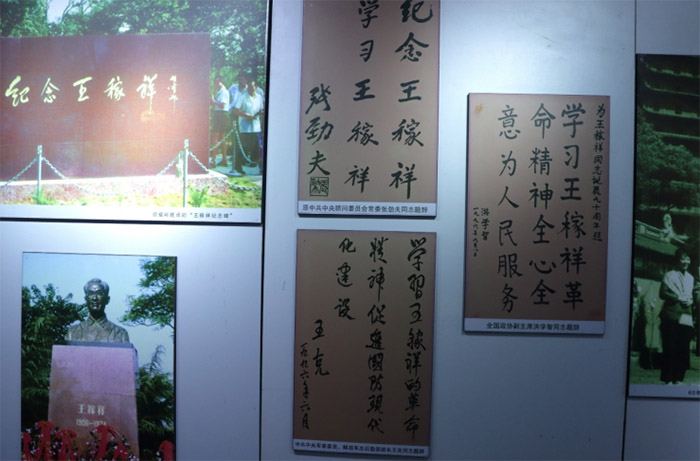 纪念王稼祥
王稼祥
1906—1974
纪念王稼祥
学习王稼祥
张劲夫
原中共中央顾问委员会常委张劲夫同志题辞
学習王稼祥的革命
精神促進國防現代
化建设
王克
一九九六年六月
为王稼祥同志诞辰九十周年题
学习王稼祥革
命精神全心全
意为人民服务
洪学智
全国政协副主席洪学智同志题辞